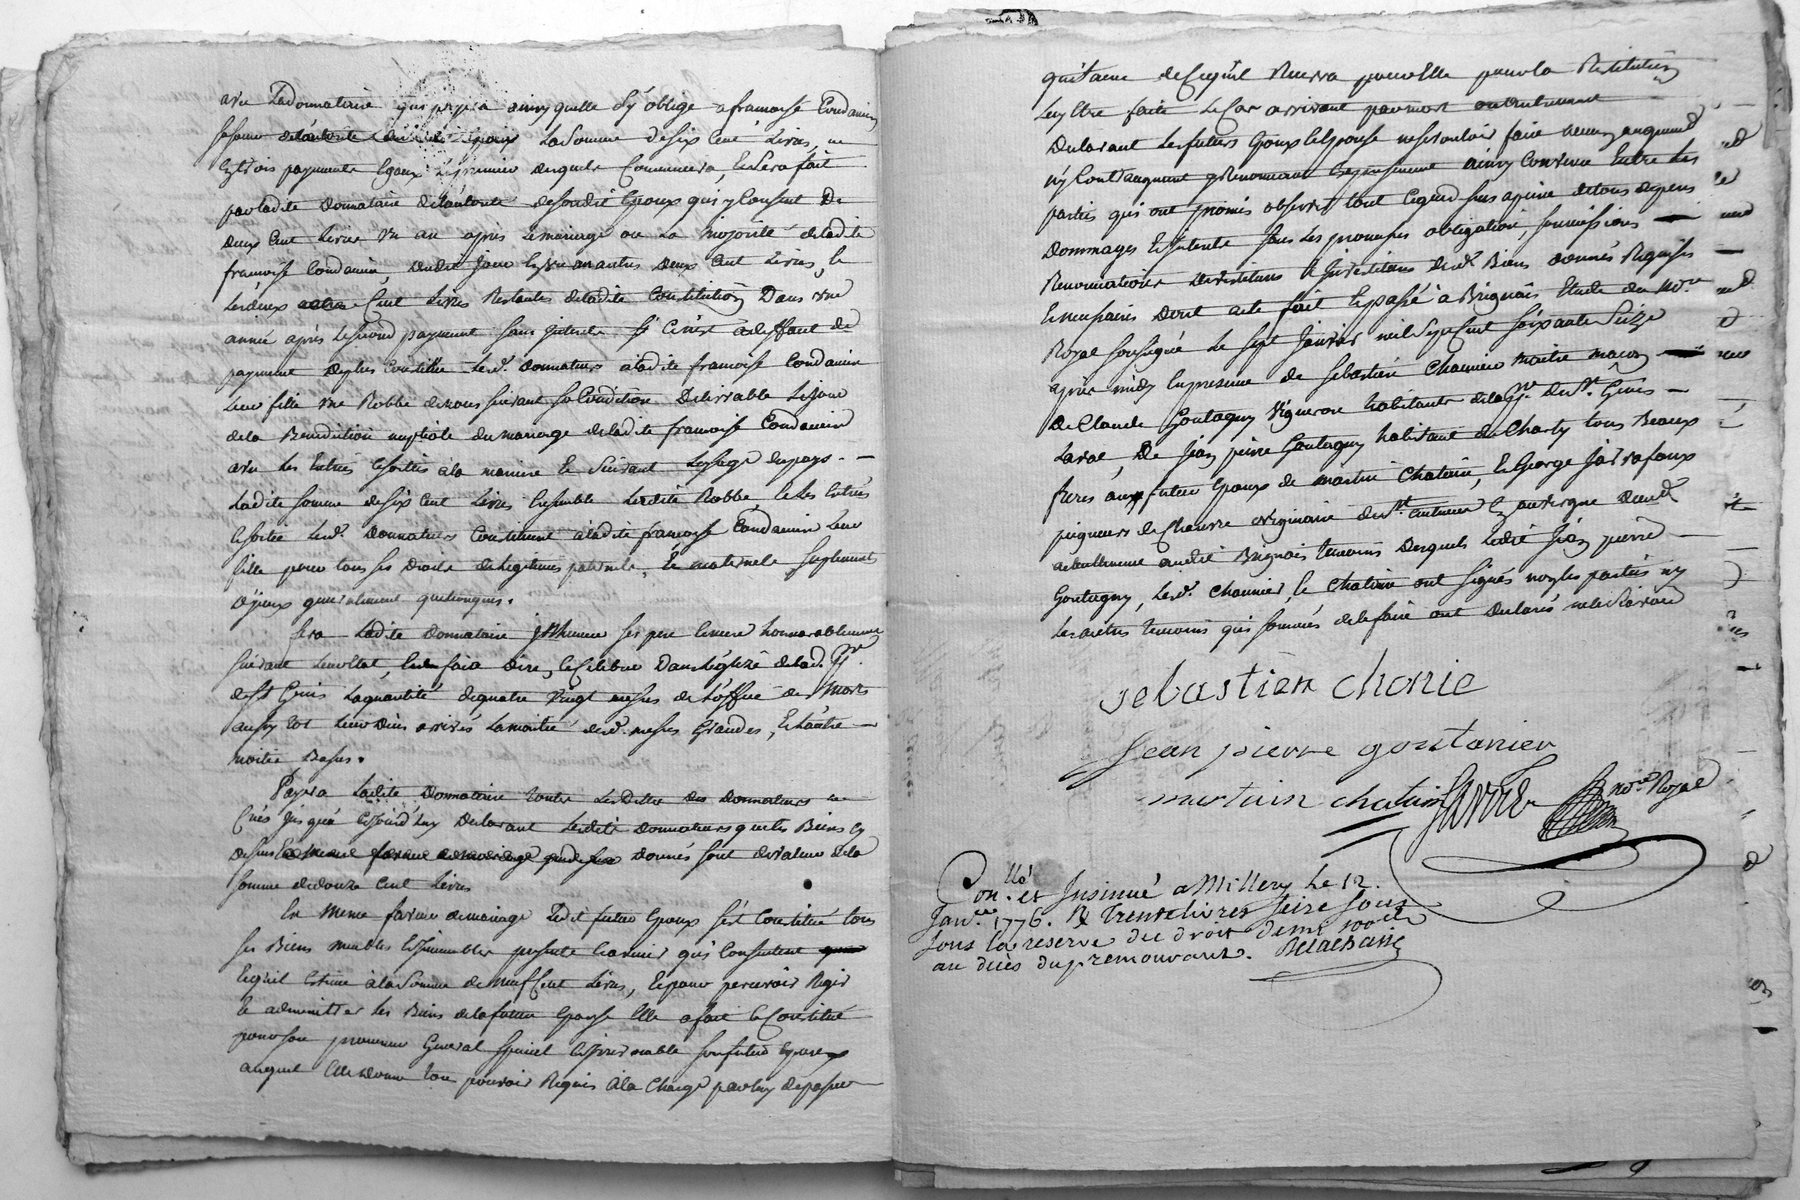 avec Ladonnataire qui payera ainsy quelle s'y oblige a francoise Condamin
sa soeur La Somme de Six Cent Livres, en
trois payements Egaux Le premier desquels Commencera, et Sera fait
par ladite donnataire de l'autorité de sondit Epoux qui y Consent De
deux Cent Livres un an après le mariage ou La majorité de ladite
francoise Condamin, dudit jour en un an autres deux Cent Livres, et
Les deux Cent Livres Restantes de ladite Constitution Dans une
année après le second payement sans interets si ce n'est a deffaut de
payement de plus Constitue Lesd. donnateurs a ladite francoise Condamin
Leur fille une Robbe de noces suivant sa Condition Delivrable Le jour
de la Benediction nuptiale du mariage de ladite francoise Condamin
avec Les Entrées et sorties a la maniere et Suivant L'usage du pays. —
Ladite somme de six Cent Livres Ensemble Ladite Robbe et les Entrées
et sorties Lesd. Donnateurs Constituent a ladite francoise Condamin Leur
fille pour tous ses Droits de legitimes paternels, et maternels suplements
d'iceux generalement quelconques.
fera Ladite donnataire inhumer ses pere et mere honnorablement
suivant leur Etat, Et en fera dire, et Celebrer Dans l'église de lad. ppe.
de St Genis La quantité de quatre Vingt messes de L'office de Morts
aussy tot Leur Deces arrivés La moitié desd. messes Grandes, Et l'autre —
moitié Basses.
Payera Ladite Donnataire toutes Les Dettes des Donnateurs
Crées jusqu'a Cejourd'huy Declarant Lesdits donnateurs que les Biens cy
dessus donnés sont de valeur De la
somme de douze Cent Livres
En Meme faveur de mariage Ledit futur Epoux s'est Constitué tous
ses Biens meubles Et immeubles presents et avenir qui Consistent
Et qu'il Estime a la Somme de Neuf Cent Livres, Et pour percevoir Regir
Et administrer les Biens de la future Epouse Elle a fait et Constitué
pour son procureur General special Et irrevocable son futur Epoux
auquel Elle donne tout pouvoir Requis a la Charge par luy de passer
quittance de Ce qu'il Recevra pour Elle pour la Restitution
Luy Etre faite Le Cas arrivant par mort ou autrement
Declarant Les futurs Epoux et Epouse ne se vouloir faire aucun augment
ny Contraugment y Renoncant Expressement ainsy Convenu Entre Les
parties qui ont promis observer tout Ce que dessus a peine de tous depens
Dommages Et interets sous Les promesses obligations, soumissions —
Renonciations devestitions Et investitions desd. Biens donnés Requises
Et necessaires Dont acte fait Et passé a Brignais Etude du No.re
Royal soussigné Le Sept Janvier mil Sept Cent soixante Seize
après midy En presence de Sebastien Chaunier maitre macon
De Claude Goutagny Vigneron habitants de la ppe. de St. Genis —
Laval, De Jean pierre Goutagny habitant de Charly tous Beaux
freres aux futur Epoux de martin Chatain, Et George
peigneurs de Chanvre originaire de St. En auvergne de
audit Brignais temoins Desquels Ledit Jean pierre —
Goutagny, Lesd. Chaunier, et Chatain ont signés non les parties ny
Les autres temoins qui sommés de le faire ont declarés ne le sçavoir
sebastien chonie
Jean pierre goutanier
martain chatain
No.re Royal
Con.llé et Insinué a Millery Le 12.
Janv.er 1776. R. Trente livres Seize sous
sous la reserve du droit demi
au décès du premourant.